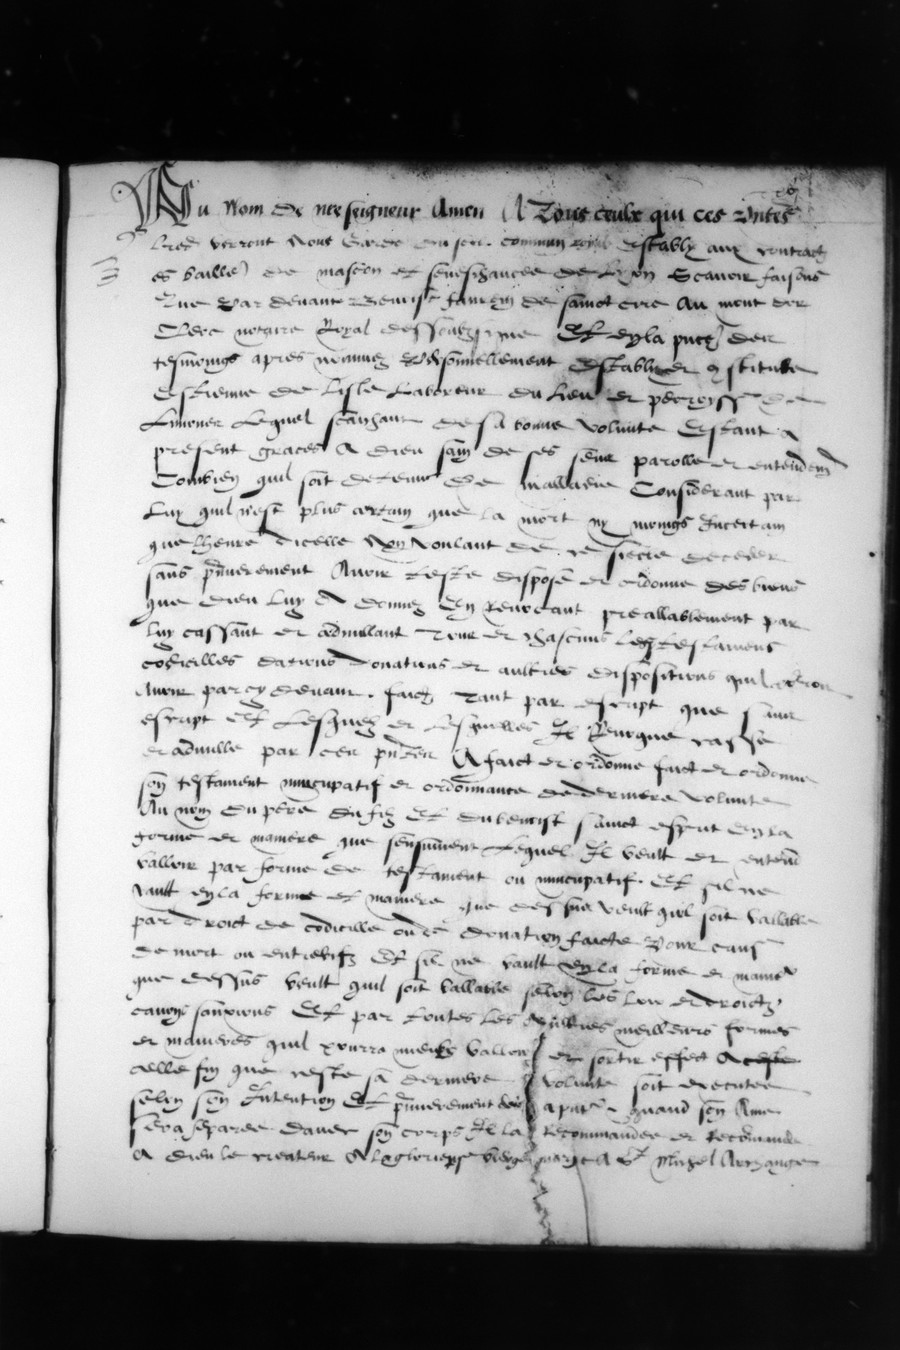 Au Nom de nre seigneur Amen A Tous ceulx qui ces pntes
lres verront Nous Garde du seel commun royal estably aux contractz
es baille de mascon et seneschaucee de Lyon Scavoir faisons
Que par devant Benoist de sainct cire Au mont dor
Clerc notaire Royal dessoubz signe Et en la pnce des
tesmoings apres nommez personnellement estably et constitue
Estienne de Lisle Laboreur du lieu et perroysse de
Limoner Lequel saichant de sa bonne volunte Estant a
present graces a dieu sain de ses sens parolle et entendemt
Combien quil soit detenu de malladie Considerant par
Luy quil nest plus certain que la mort ny moings Incertain
que lheure dicelle Non voulant de ce siecle deceder
sans pmierement Avoir teste dispose et ordonne des biens
que dieu luy a donnez En Revocant preallablement par
luy cassant et adnullant Tous et chascuns les testamens
codicilles dations donations et aultres dispositions quil
Avoir par cy devant faictz Tant par escript que sans
escript Et Lesquelz et Lesquelles Il Revoque casse
et adnulle par ces pntes A faict et ordonne faict et ordonne
son testament nuncupatif et ordonnance de derniere volunte
Au nom du pere du filz Et du benoist sainct esprit En la
forme et maniere que sensuivent Lequel Il veult et entend
valloir par forme de testament ou nuncupatif Et sil ne
vault en la forme et maniere que dessus veult quil soit vallable
par droict de codicille ou de donation faicte pour cause
de mort ou entrevifz Et sil ne vault en la forme et maniere
que dessus veult quil soit vallable selon les loix et droictz
canons sanxions Et par toutes les aultres meilleurs formes
et manieres quil pourra mieulx valloir et sortir effect
celle fin que ceste sa derniere volunte soit executee
selon son Intention Et pmierement quand son Ame
sera separee daver son corps Il la Recommandee et Recommande
A dieu le createur A la glorieuse vierge marie A St Michel Archange